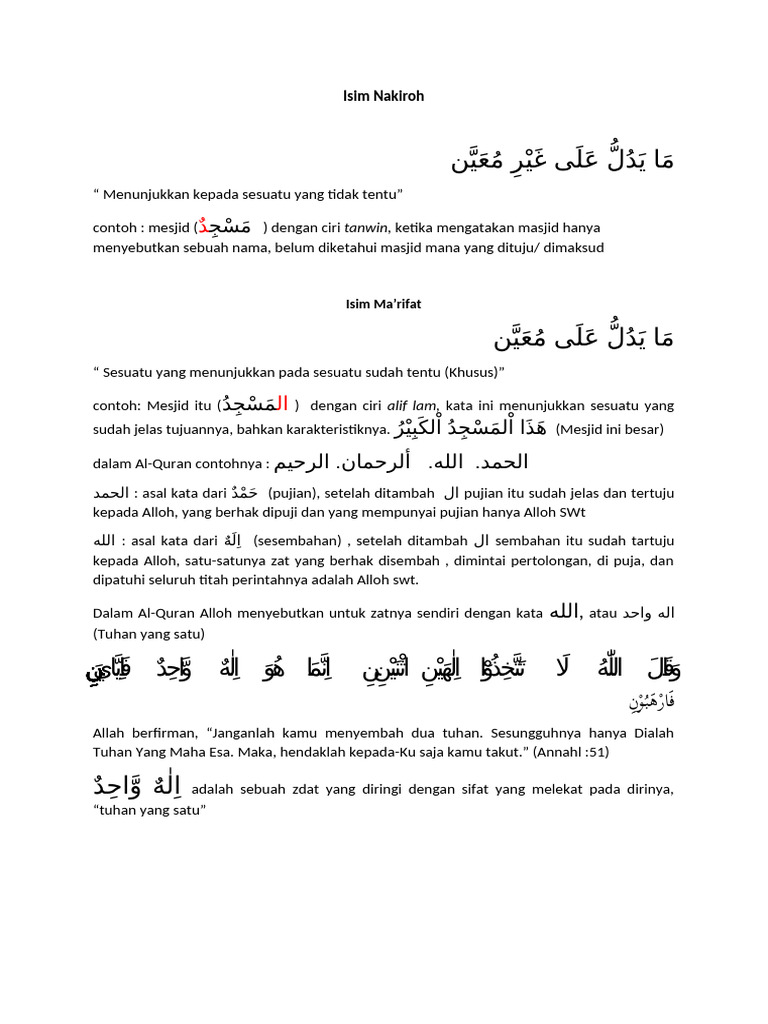 Isim Nakiroh
مَا يَدُلُّ عَلَى غَيْرِ مُعَيَّن
“ Menunjukkan kepada sesuatu yang tidak tentu”
contoh : mesjid (مَسْجِدٌ ) dengan ciri tanwin, ketika mengatakan masjid hanya
menyebutkan sebuah nama, belum diketahui masjid mana yang dituju/ dimaksud
Isim Ma’rifat
مَا يَدُلُّ عَلَى مُعَيَّن
“ Sesuatu yang menunjukkan pada sesuatu sudah tentu (Khusus)”
contoh: Mesjid itu (المَسْجِدُ ) dengan ciri alif lam, kata ini menunjukkan sesuatu yang
sudah jelas tujuannya, bahkan karakteristiknya. هَذَا اْلمَسْجِدُ اْلكَبِيْرُ (Mesjid ini besar)
dalam Al-Quran contohnya : الحمد. الله. ألرحمان. الرحيم
الحمد : asal kata dari حَمْدٌ (pujian), setelah ditambah ال pujian itu sudah jelas dan tertuju
kepada Alloh, yang berhak dipuji dan yang mempunyai pujian hanya Alloh SWt
الله : asal kata dari اِلَهٌ (sesembahan) , setelah ditambah ال sembahan itu sudah tartuju
kepada Alloh, satu-satunya zat yang berhak disembah , dimintai pertolongan, di puja, dan
dipatuhi seluruh titah perintahnya adalah Alloh swt.
Dalam Al-Quran Alloh menyebutkan untuk zatnya sendiri dengan kata الله, atau اله واحد
(Tuhan yang satu)
وَقَالَ اللّٰهُ لَا تَتَّخِذُوْٓا اِلٰهَيْنِ اثْنَيْنِۚ اِنَّمَا هُوَ اِلٰهٌ وَّاحِدٌ فَاِيَّايَ
فَارْهَبُوْنِ
Allah berfirman, “Janganlah kamu menyembah dua tuhan. Sesungguhnya hanya Dialah
Tuhan Yang Maha Esa. Maka, hendaklah kepada-Ku saja kamu takut.” (Annahl :51)
اِلٰهٌ وَّاحِدٌ adalah sebuah zdat yang diringi dengan sifat yang melekat pada dirinya,
“tuhan yang satu”